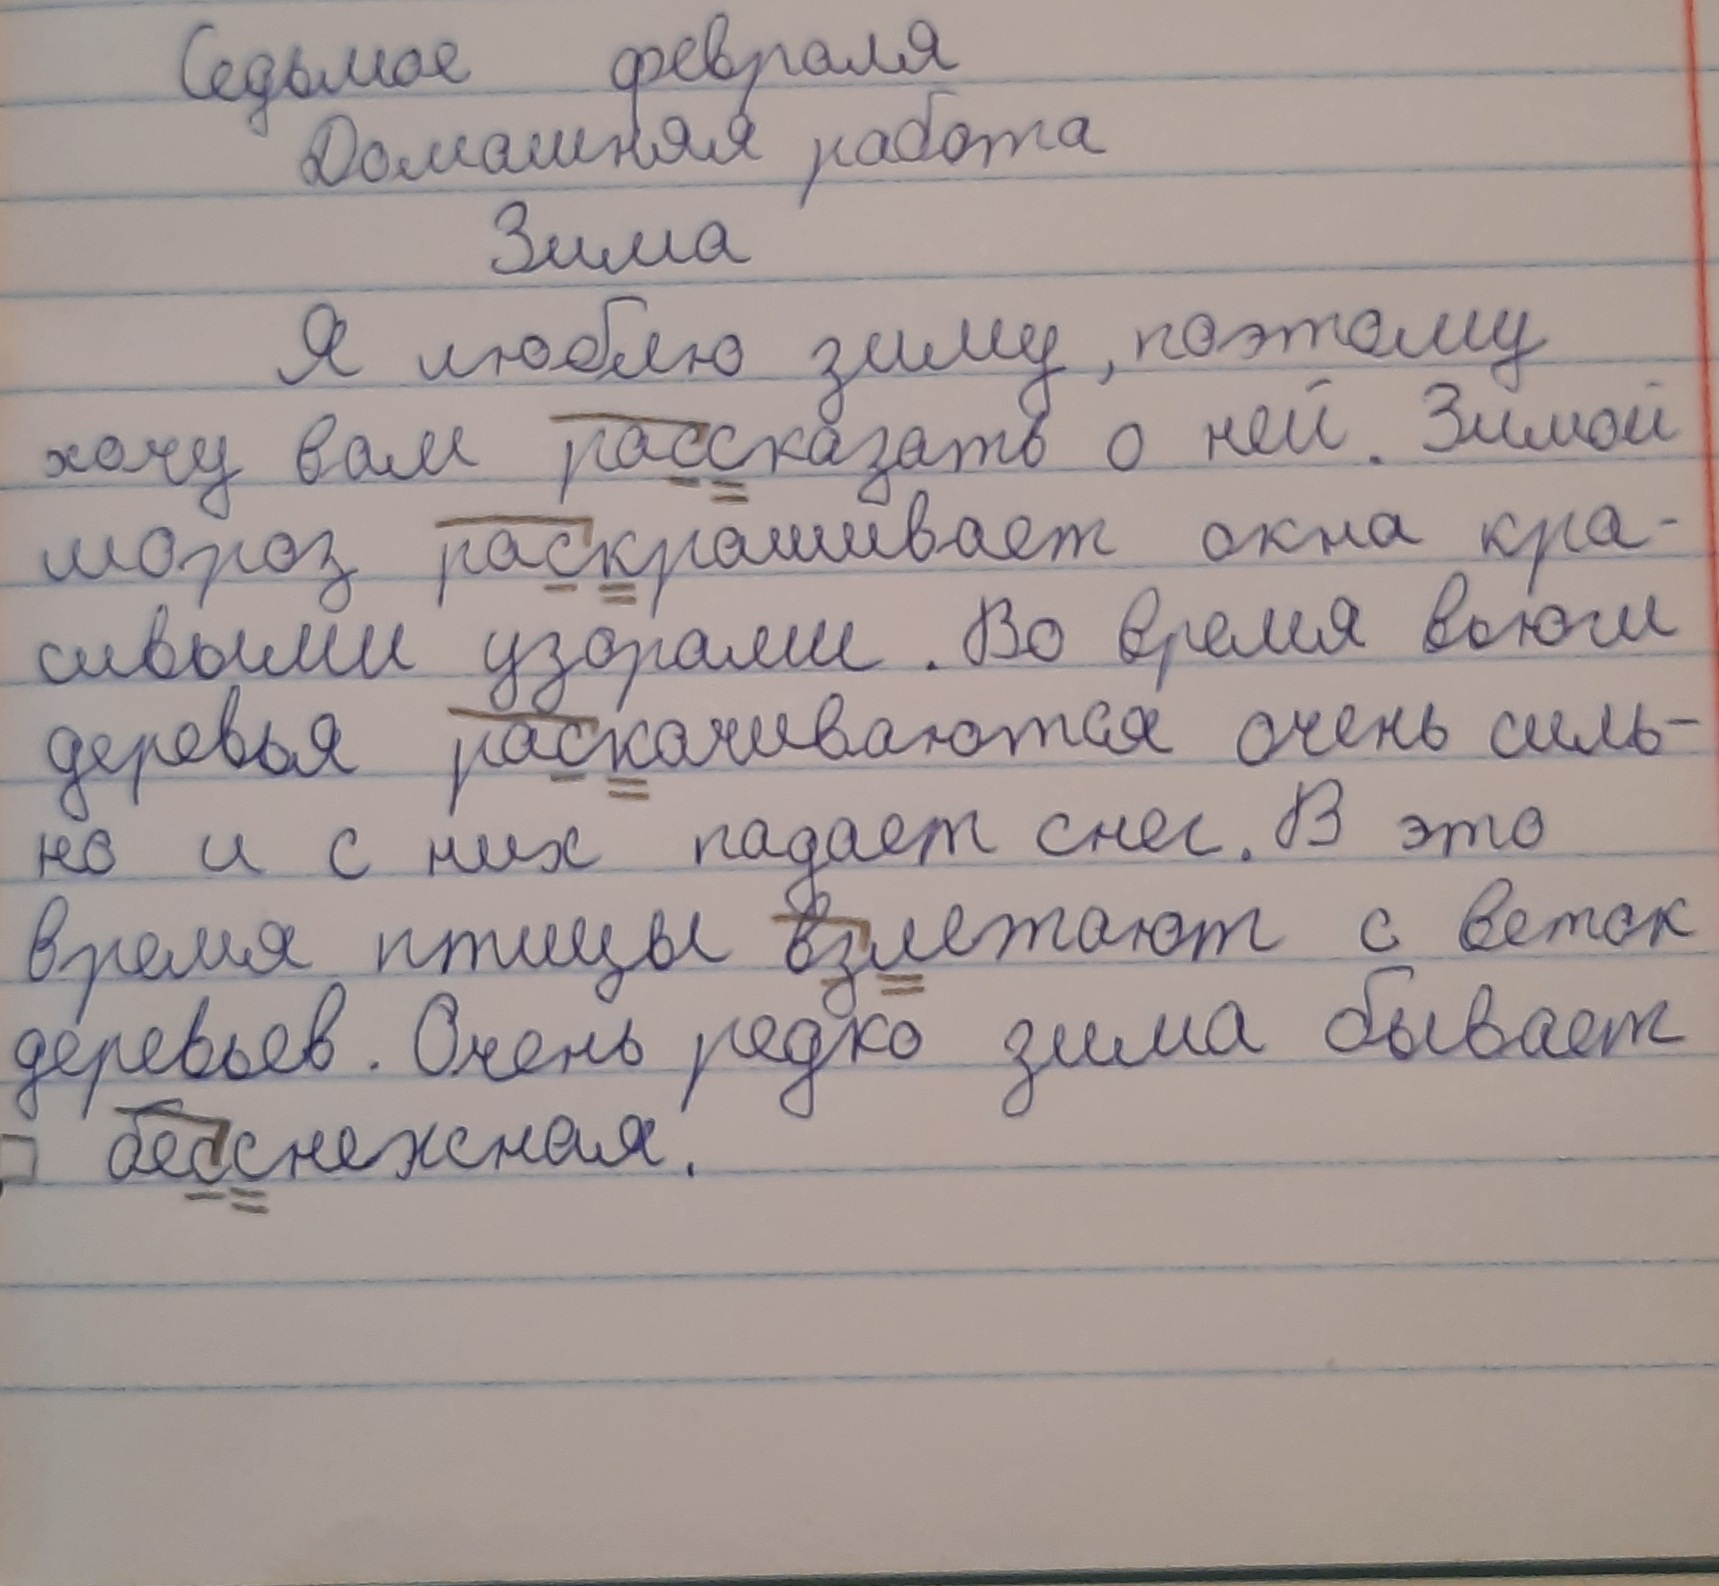 Седьмое февраля
Домашняя работа
Зима
Я люблю зиму, поэтому
хочу вам рассказать о ней. Зимой
мороз раскрашивает окна кра-
сивыми узорами. Во время вьюги
деревья раскачиваются очень силь-
но и с них падает снег. В это
время птицы взлетают с веток
деревьев. Очень редко зима бывает
бесснежная.